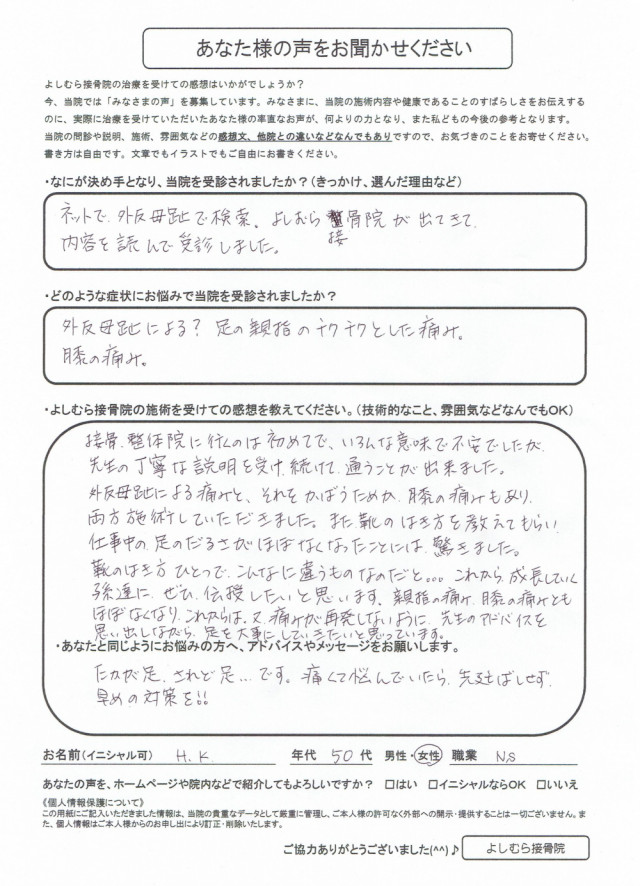 あなた様の声をお聞かせください
よしむら接骨院の治療を受けての感想はいかがでしょうか？
今、当院では「みなさまの声」を募集しています。みなさまに、当院の施術内容や健康であることのすばらしさをお伝えする
のに、実際に治療を受けていただいたあなた様の率直なお声が、何よりの力となり、また私どもの今後の参考となります。
当院の問診や説明、施術、雰囲気などの感想文、他院との違いなどなんでもありですので、お気づきのことをお寄せください。
書き方は自由です。文章でもイラストでもご自由にお書きください。
・なにが決め手となり、当院を受診されましたか？（きっかけ、選んだ理由など）
ネットで、外反母趾で検索、よしむら接骨院が出てきて
内容を読んで受診しました。
・どのような症状にお悩みで当院を受診されましたか？
外反母趾による？足の親指のチクチクとした痛み。
膝の痛み。
・よしむら接骨院の施術を受けての感想を教えてください。（技術的なこと、雰囲気などなんでもOK）
接骨、整体院に行くのは初めてで、いろんな意味で不安でしたが
先生の丁寧な説明を受け、続けて通うことが出来ました。
外反母趾による痛みと、それをかばうためか、膝の痛みもあり、
両方施術していただきました。また靴のはき方を教えてもらい
仕事中の足のだるさがほぼなくなったことには、驚きました。
靴のはき方ひとつで、こんなに違うものなのだと。。。これから成長していく
孫達に、ぜひ伝授したいと思います。親指の痛み、膝の痛みとも
ほぼなくなり、これからは、又痛みが再発しないように、先生のアドバイスを
思い出しながら、足を大事にしていきたいと思っています。
・あなたと同じようにお悩みの方へ、アドバイスやメッセージをお願いします。
たかが足、されど足…です。痛くて悩んでいたら、先延ばしせず、
早めの対策を!!
お名前（イニシャル可） H.K. 年代 50代 男性・女性 職業 N,S
あなたの声を、ホームページや院内などで紹介してもよろしいですか？ □はい □イニシャルならOK □いいえ
《個人情報保護について》
この用紙にご記入いただきました情報は、当院の貴重なデータとして厳重に管理し、ご本人様の許可なく外部への開示・提供することは一切ございません。ま
た、個人情報はご本人様からのお申し出により訂正・削除いたします。
ご協力ありがとうございました(^^)♪ よしむら接骨院